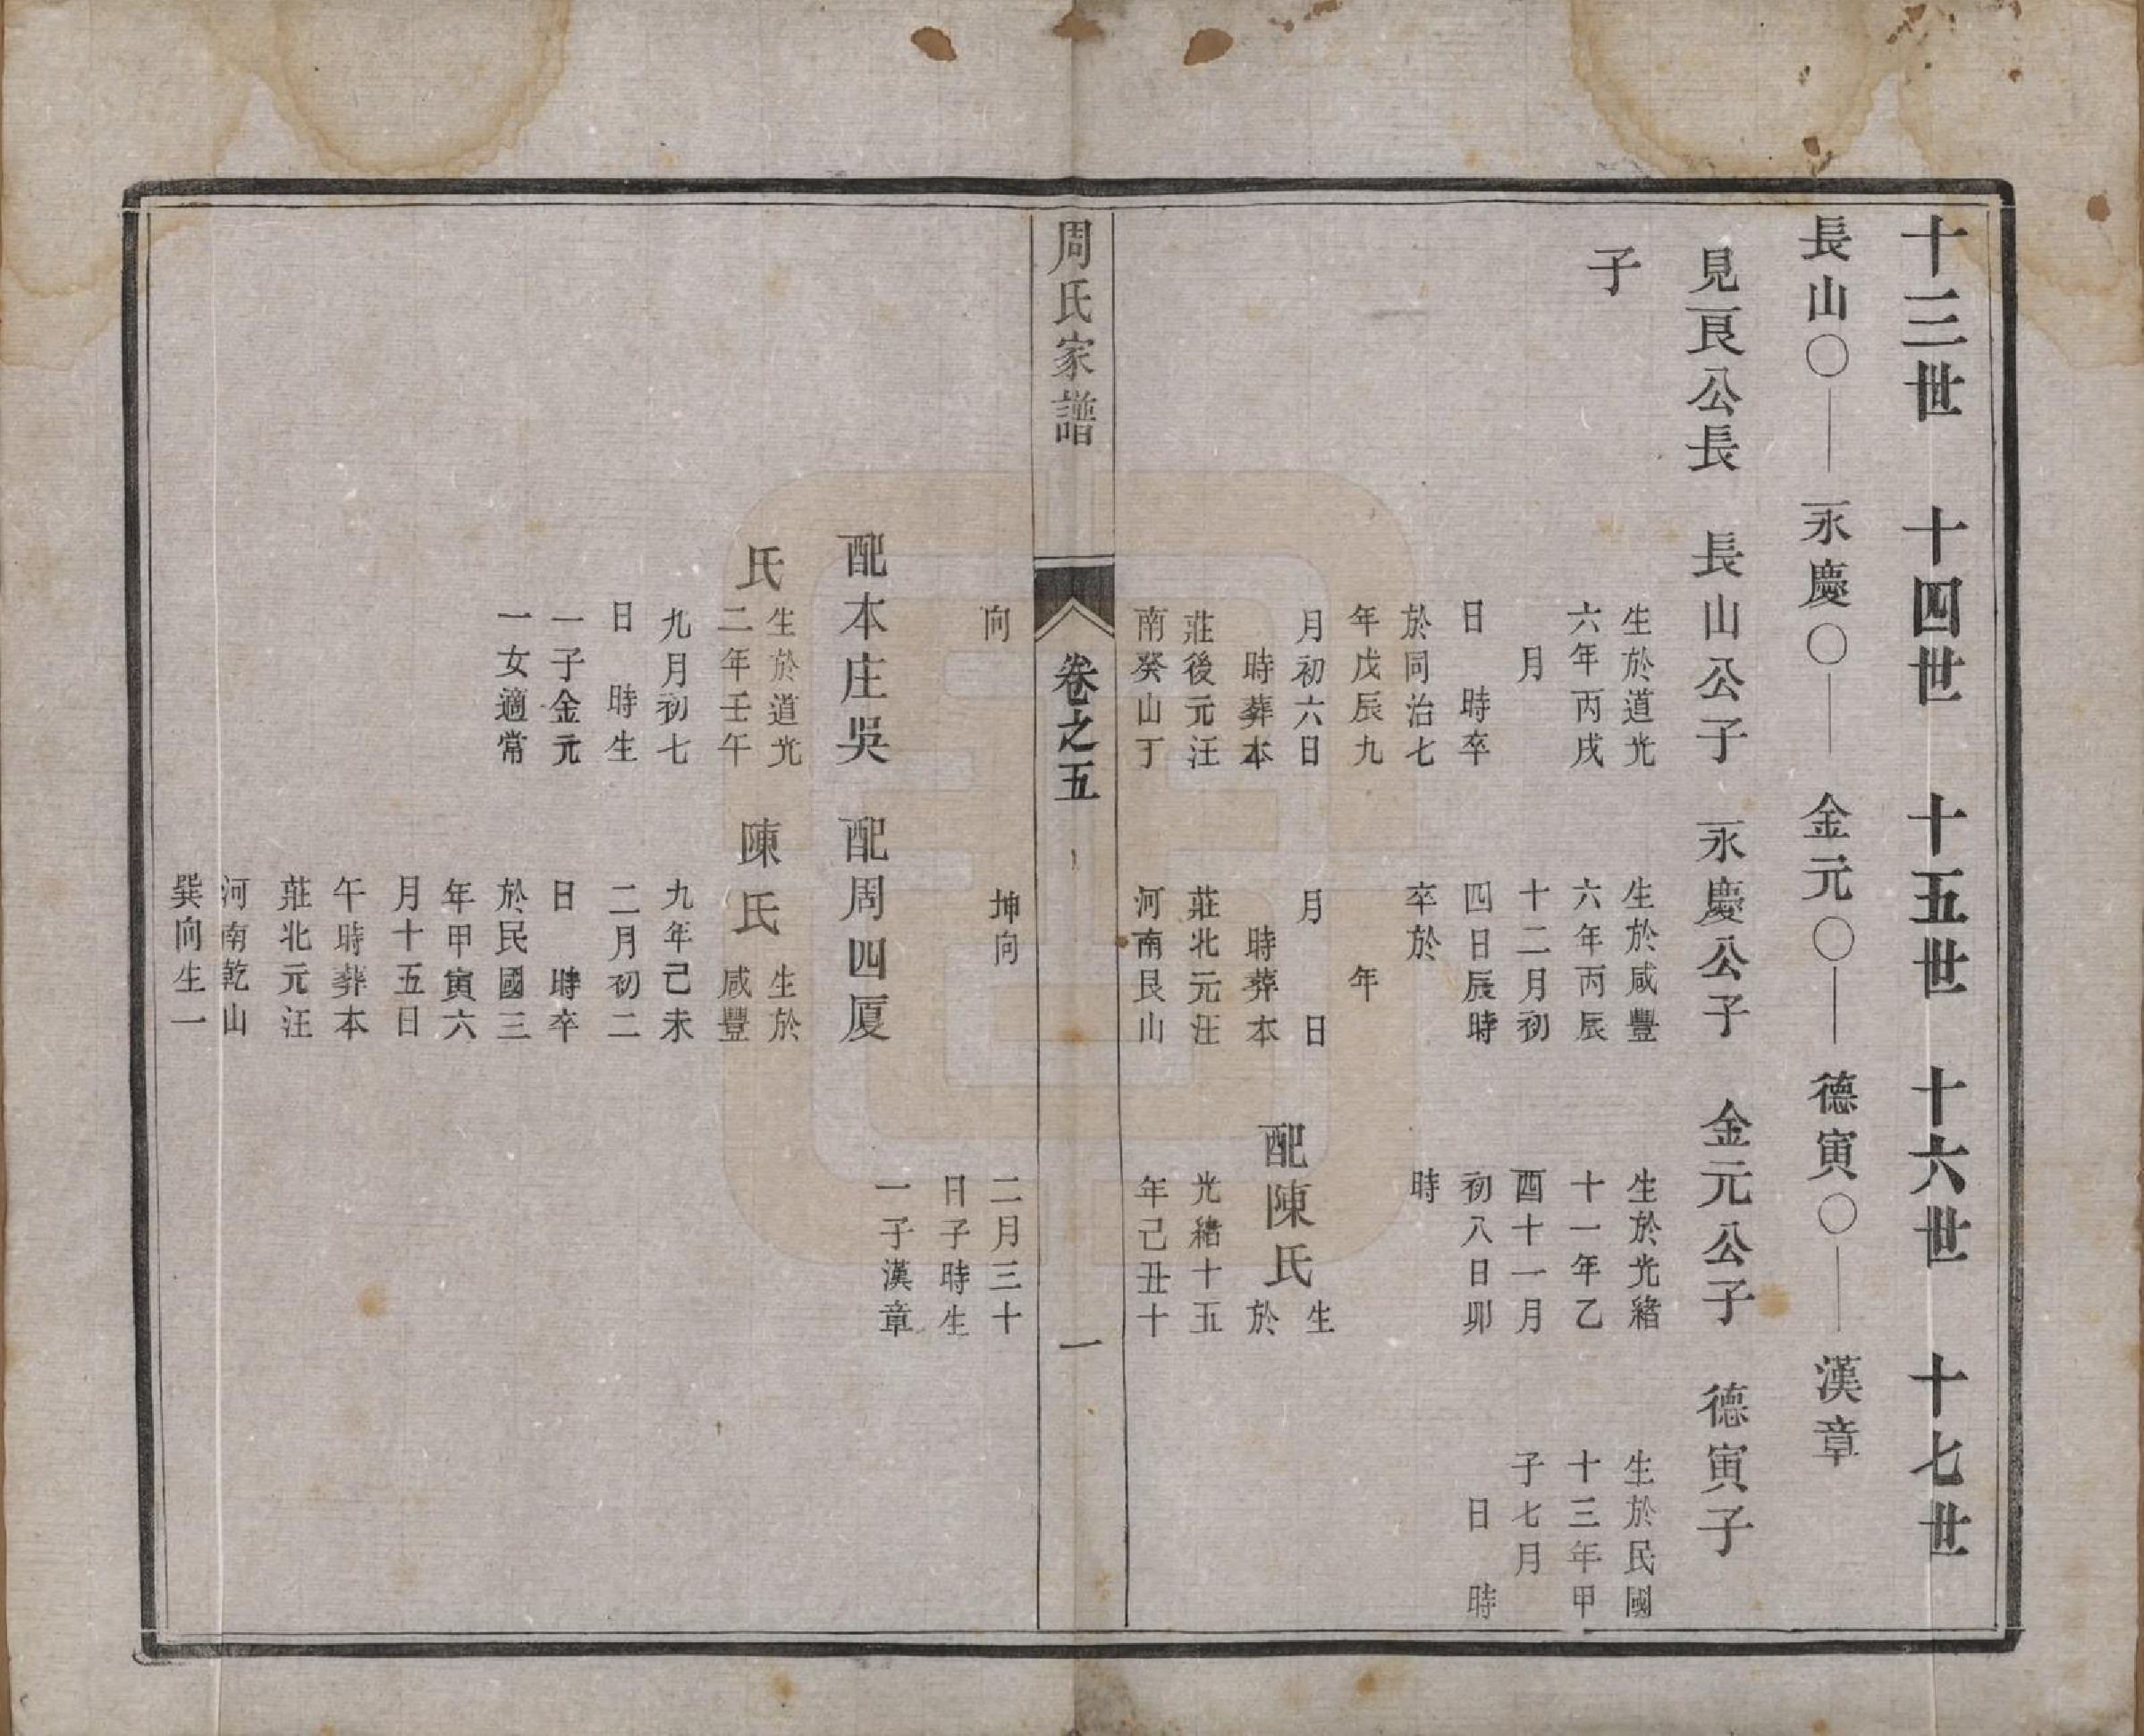 十三世　十四世　十五世　十六世　十七世
長山〇　永慶〇　金元〇　德寅〇　漢章
見良公長
子
長山公子
生於道光
六年丙戌
月
日　時卒
於同治七
年戊辰九
月初六日
時葬本
莊後元汪
南癸山丁
向
配本庄吳
氏
生於道光
二年壬午
九月初七
日　時生
一子金元
一女適常
永慶公子
生於咸豐
六年丙辰
十二月初
四日辰時
卒於
年
月　日
時葬本
莊北元汪
河南艮山
坤向
配周四厦
陳氏
生於
咸豐
九年己未
二月初二
日　時卒
於民國三
年甲寅六
月十五日
午時葬本
莊北元汪
河南乾山
巽向生一
金元公子
生於光緒
十一年乙
酉十一月
初八日卯
時
配陳氏
生
於
光緒十五
年己丑十
二月三十
日子時生
一子漢章
德寅子
生於民國
十三年甲
子七月
日　時
周氏家譜
卷之五
一